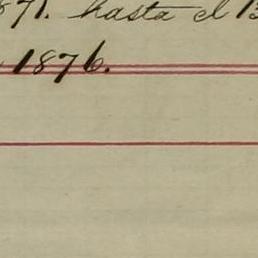 871. hasta el 13
1876.